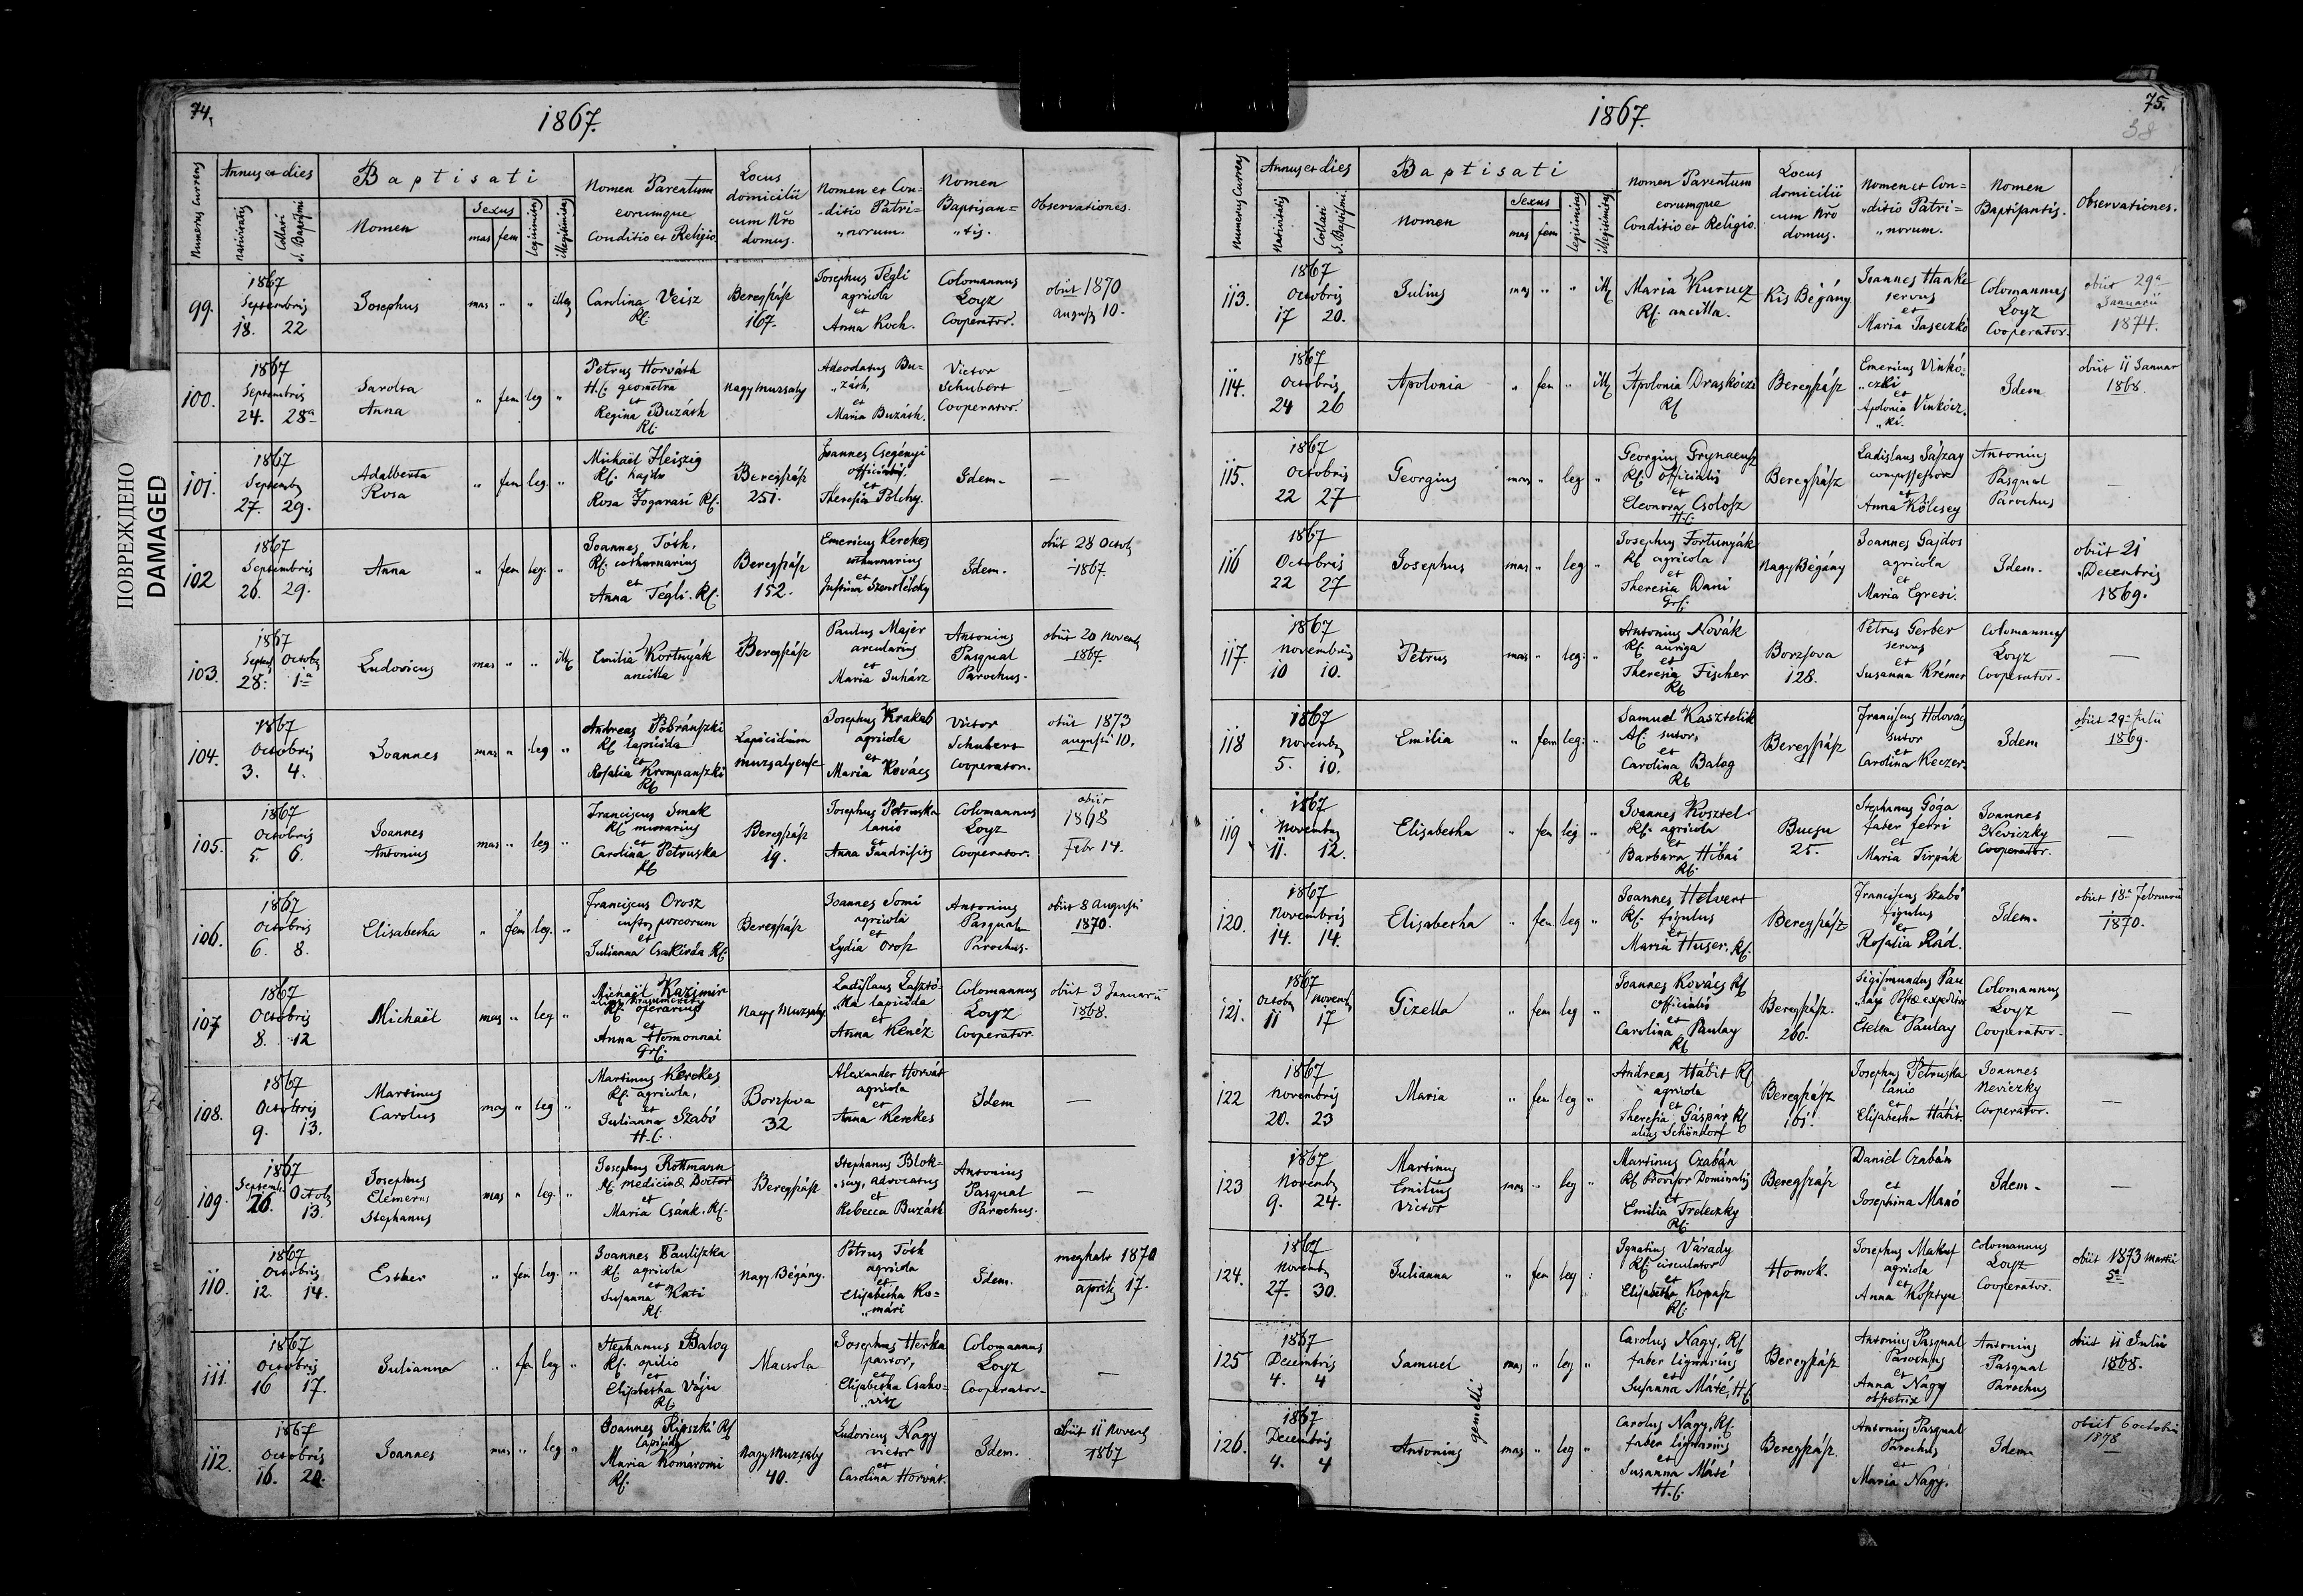 ПОВРЕЖДЕНО
DAMAGED
74.
1867.
Numerus Currens
Annus et dies
Nativitatis
Collati S. Baptismi
Baptisati
Nomen
Sexus
mas fem
legitimitas
illegitimitas
Nomen Parentum
eorumque
Conditio et Religio.
Locus
domicilii
cum Nro
domus.
Nomen et Con=
-ditio Patri=
"norum.
Nomen
Baptisan=
"tis.
Observationes.
99.
1867
Septembris
18. 22
Josephus
mas " " illeg
Carolina Veisz
Rf.
Beregszász
167.
Josephus Tégli
agricola
et
Anna Koch.
Colomannus
Loyz
Cooperator.
obiit 1870
August 10.
100.
1867
Septembris
24. 28a
Sarolta
Anna
" fem leg "
Petrus Horváth
H.C. geometra
et
Regina Buzáth
Rf.
Nagy Muzsaly
Adeodatus Bu=
"záth,
et
Maria Buzáth.
Victor
Schubert
Cooperator.
—
101.
1867
Septemb
27. 29.
Adalberta
Rosa
" fem leg. "
Michaël Heiszig
Rf. hajdu
et
Rosa Fogarasi Rf.
Beregszász
251.
Joannes Csegényi
et
Theresia Polchy.
Idem.
—
102
1867
Septembris
20. 29.
Anna
" fem leg. "
Joannes Tóth,
Rf. cothurnarius
et
Anna Tégli. Rf.
Beregszász
152.
Emericus Kerekes
cothurnarius
et
Justina
Idem.
obiit 28 Octob
1867.
103.
1867
Septemb Octob
28. 1.a
Ludovicus
mas " " ill
Emilia Kortnyák
ancilla
Beregszász
Paulus Majer
arcularius
et
Maria Juhász
Antonius
Pasqual
Parochus.
obiit 20 Novemb
1867.
104.
1867
Octobris
3. 4.
Joannes
mas " leg "
Andreas Dobránszki
Rf. lapicida
et
Rosalia Krompanszki
Rf.
Lapicidium
muzsalyense
Josephus Krakab
agricola
et
Maria Kovács
Victor
Schubert
Cooperator.
obiit 1873
augusti 10.
105.
1867
Octobris
5. 6.
Joannes
Antonius
mas " leg "
Franciscus Smak
Rf. murarius
et
Carolina Petruska
Rf.
Beregszász
19.
Josephus Petruska
lanio
et
Anna
Colomannus
Loyz
Cooperator.
obiit
1868
Febr 14.
106.
1867
Octobris
6. 8.
Elisabetha
" fem leg. "
Franciscus Orosz
custos porcorum
et
Julianna Csakirda Rf.
Beregszász
Joannes Somi
agricola
et
Lydia Orosz
Antonius
Pasqual
Parochus.
obiit 8 Augusti
1870.
107
1867
Octobris
8. 12
Michaël
mas " leg "
Michaël Kazimir
Rf. operarius
et
Anna Homonnai
Grf.
Nagy Muzsaly
Ladislaus Lasztó-
"ka lapicida
et
Anna Kenéz
Colomannus
Loyz
Cooperator.
obiit 3 Januarii
1868.
108.
1867
Octobris
9. 13.
Martinus
Carolus
mas " leg "
Martinus Kerekes
Rf. agricola,
et
Julianna Szabó
H.C.
Borzsova
32
Alexander Horvát
agricola
et
Anna Kerekes
Idem
—
109.
1867
Septemb Octob
26. 13.
Josephus
Elemerus
Stephanus
mas " leg. "
Josephus Rottmann
Rf. medicinæ Doctor
et
Maria Csánk. Rf.
Beregszász
Stephanus Blok-
"say, advocatus
et
Rebecca Buzáth
Antonius
Pasqual
Parochus.
—
110.
1867
Octobris
12. 14.
Esther
" fem leg. "
Joannes Pauliszka
Rf. agricola
et
Susanna Kati
Rf.
Nagy Bégány.
Petrus Tóth
agricola
et
Elisabetha Ko=
"mári
Idem.
meghalt 1870
aprilis 17.
111.
1867
Octobris
16 17.
Julianna
" fe leg "
Stephanus Balog
Rf. opilio
et
Elisabetha Váju
Rf.
Macsola
Josephus Herka
pastor,
et
Elisabetha Csako=
"vics
Colomannus
Loyz
Cooperator.
—
112.
1867
Octobris
16. 20.
Joannes
mas " leg "
Joannes Ripszki Rf
lapicida
Maria Komáromi
Rf.
Nagy Muzsaly
40.
Ludovicus Nagy
victor
et
Carolina Horvát.
Idem.
obiit 11 Novemb
1867
75.
38
1867.
Numerus Currens
Annus et dies
Nativitatis
Collati S. Baptismi
Baptisati
Nomen
Sexus
mas fem
legitimitas
illegitimitas
Nomen Parentum
eorumque
Conditio et Religio.
Locus
domicilii
cum Nro
domus.
Nomen et Con=
"ditio Patri=
"norum.
Nomen
Baptisantis.
Observationes.
113.
1867
Octobris
17 20.
Julius
mas " " ill
Maria Kurucz
Rf. ancilla.
Kis Bégány
Joannes Hanke
servus
et
Maria Jaseczkó
Colomannus
Loyz
Cooperator.
obiit 29a
Januarii
1874.
114.
1867
Octobris
24 26
Apolonia
" fem " ill
Apolonia Draskóczi
Rf
Beregszász
Emericus Vinkó=
"czki
et
Apolonia Vinkócz=
"ki.
Idem
obiit 11 Januar
1868.
115.
1867
Octobris
22 27
Georgius
mas " leg "
Georgius Grynaeusz
Rf. officialis
et
Eleonora Csolosz
H.C.
Beregszász
Ladislaus Jászay
compossessor
et
Anna Kölcsey
Antonius
Pasqual
Parochus
—
116
1867
Octobris
22 27
Josephus
mas " leg "
Josephus Fortunyák
Rf. agricola
et
Theresia Dani
Grf.
Nagy Bégány
Joannes Gajdos
agricola
et
Maria Egresi.
Idem.
obiit 21
Decembris
1869.
117.
1867
Novembris
10 10.
Petrus
mas " leg: "
Antonius Novák
Rf. auriga
et
Theresia Fischer
Rf
Borzsova
128.
Petrus Gerber
servus
et
Susanna Krémer
Colomannus
Loyz
Cooperator.
—
118
1867
Novemb
5. 10.
Emilia
" fem leg: "
Samuel Kasztelik
Af. sutor,
et
Carolina Balog
Rf
Beregszász
Franciscus Holovács
sutor
et
Carolina Keczer.
Idem
obiit 29a Julii
1869.
119
1867
Novemb
11. 12.
Elisabetha
" fem leg "
Joannes Kosztel
Rf. agricola
et
Barbara Hibai
Rf.
Bucsu
25.
Stephanus Góga
faber ferri
et
Maria Tirpák
Joannes
Neviczky
Cooperator.
—
120.
1867
Novembris
14. 14.
Elisabetha
" fem leg "
Joannes Helvert
Rf. figulus
et
Maria Huser. Rf.
Beregszász
Franciscus Szabó
figulus
et
Rosalia Rád.
Idem.
obiit 18a Februarii
1870.
121.
1867
Octob Novemb
11 17
Gizella
" fem leg "
Joannes Kovács Rf
officialis
et
Carolina Paulay
Rf
Beregszász.
260.
Sigismundus Pau
"lay Postæ expeditor
et
Etelka Paulay
Colomannus
Loyz
Cooperator.
—
122
1867
Novembris
20. 23
Maria
" fem leg "
Andreas Hábit Rf
agricola
et
Theresia Gáspár Rf
alias Schöndorf
Beregszász
161.
Josephus Petruska
lanio
et
Elisabetha Hábit.
Joannes
Neviczky
Cooperator.
—
123
1867
Novemb
9. 24.
Martinus
Emilius
Victor
mas " leg "
Martinus Czabán
Rf Provisor Dominalis
et
Emilia Trdeczky
Rf.
Beregszász
Daniel Czabán
et
Josephina Manó
Idem.
—
124.
1867
Novemb
27. 30.
Julianna
" fem leg :
Ignatius Várady
Rf. circulator
et
Elisabetha Kopasz
Rf.
Homok.
Josephus Makuf
agricola
et
Anna Kosztyu
Colomannus
Loyz
Cooperator.
obiit 1873 Martii
5a
125
1867
Decembris
4. 4
Samuel
gemelli
mas " leg "
Carolus Nagy, Rf
faber lignarius
et
Susanna Máté, H.C
Beregszász
Antonius Pasqual
Parochus
et
Anna Nagy
obstetrix
Antonius
Pasqual
Parochus
obiit 11 Julii
1868.
126.
1867
Decembris
4. 4
Antonius
mas " leg "
Carolus Nagy, Rf.
faber lignarius
et
Susanna Máté
H.C.
Beregszász.
Antonius Pasqual
Parochus
et
Maria Nagy.
Idem
obiit 6 octobris
1878